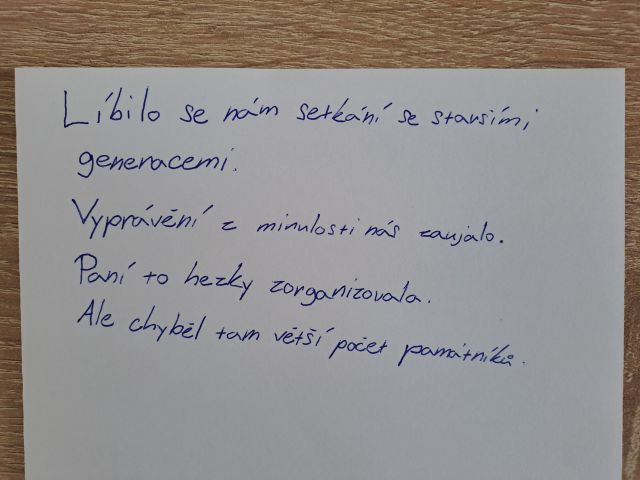 Líbilo se nám setkání se staršími
generacemi.
Vyprávění z minulosti nás zaujalo.
Paní to hezky zorganizovala.
Ale chyběl tam větší počet památníků.